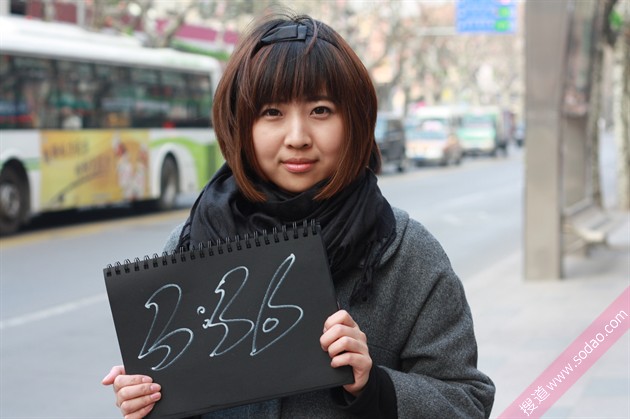 3:36
搜道 www.sodao.com